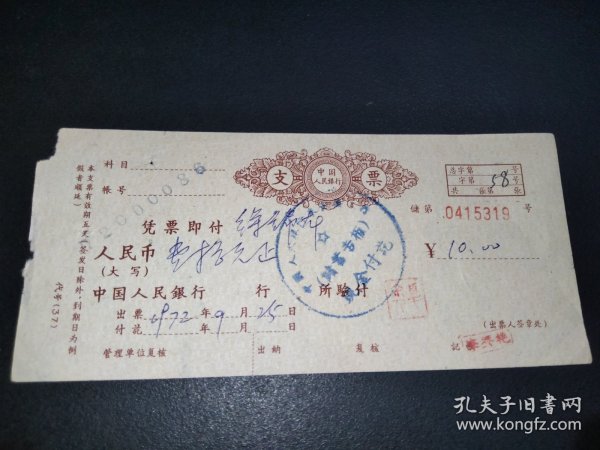 本支票有效期五天(签发日除外,到期日为例
假者顺延)
代号(37)
科目
帐号
2000086
支
中国
人民银行
票
总字第 号
字第 58 号
共 张第 张
储第 0415319 号
凭票即付
人民币
(大写)
壹拾元正
¥ 10.00
中国人民银行 行 所验付
现金付讫
出票
付讫
1972 年 9 月 25 日
(出票人签章处)
管理单位复核 出纳 复核 记
孔夫子旧书网
www.kongfz.com